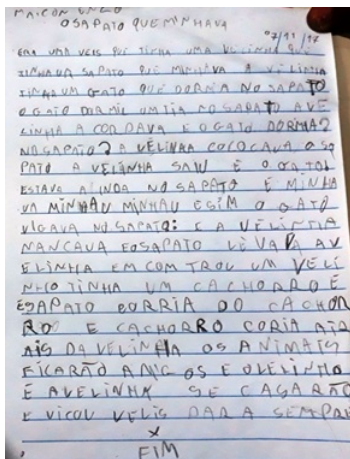 MAICON
O SAPATO QUE MINHAVA
07/11/17
ERA UMA VEIS QUE TINHA UMA VELINHA QUE
TINHA UM SAPATO QUE MINHAVA A VELINHA
TINHA UM GATO QUE DORMIA NO SAPATO
O GATO DORMIL UM DIA NO SAPATO AVE
LINHA ACORDAVA E O GATO DORMIA?
NO SAPATO? A VELINHA COLOCAVA O SA
PATO A VELINHA SAIU E O GATO
ESTAVA AINDA NO SAPATO E MINHA
VA MINHAU MINHAU E SIM O GATO
VICAVA NO SAPATO: E A VELINHA
MANCAVA E O SAPATO LEVAVA AV
ELINHA EMCOMTROU UM VELI
NHO TINHA UM CACHORRO E
E SAPATO CORRIA DO CACHOR
RO E CACHORRO CORIA ATR
AIS DA VELINHA OS ANIMAIS
FICARÃO AMIGOS E O VELINHO
E AVELINHA SE CASARÃO
E VICOU VELIS PARA SEMPRE
X
FIM